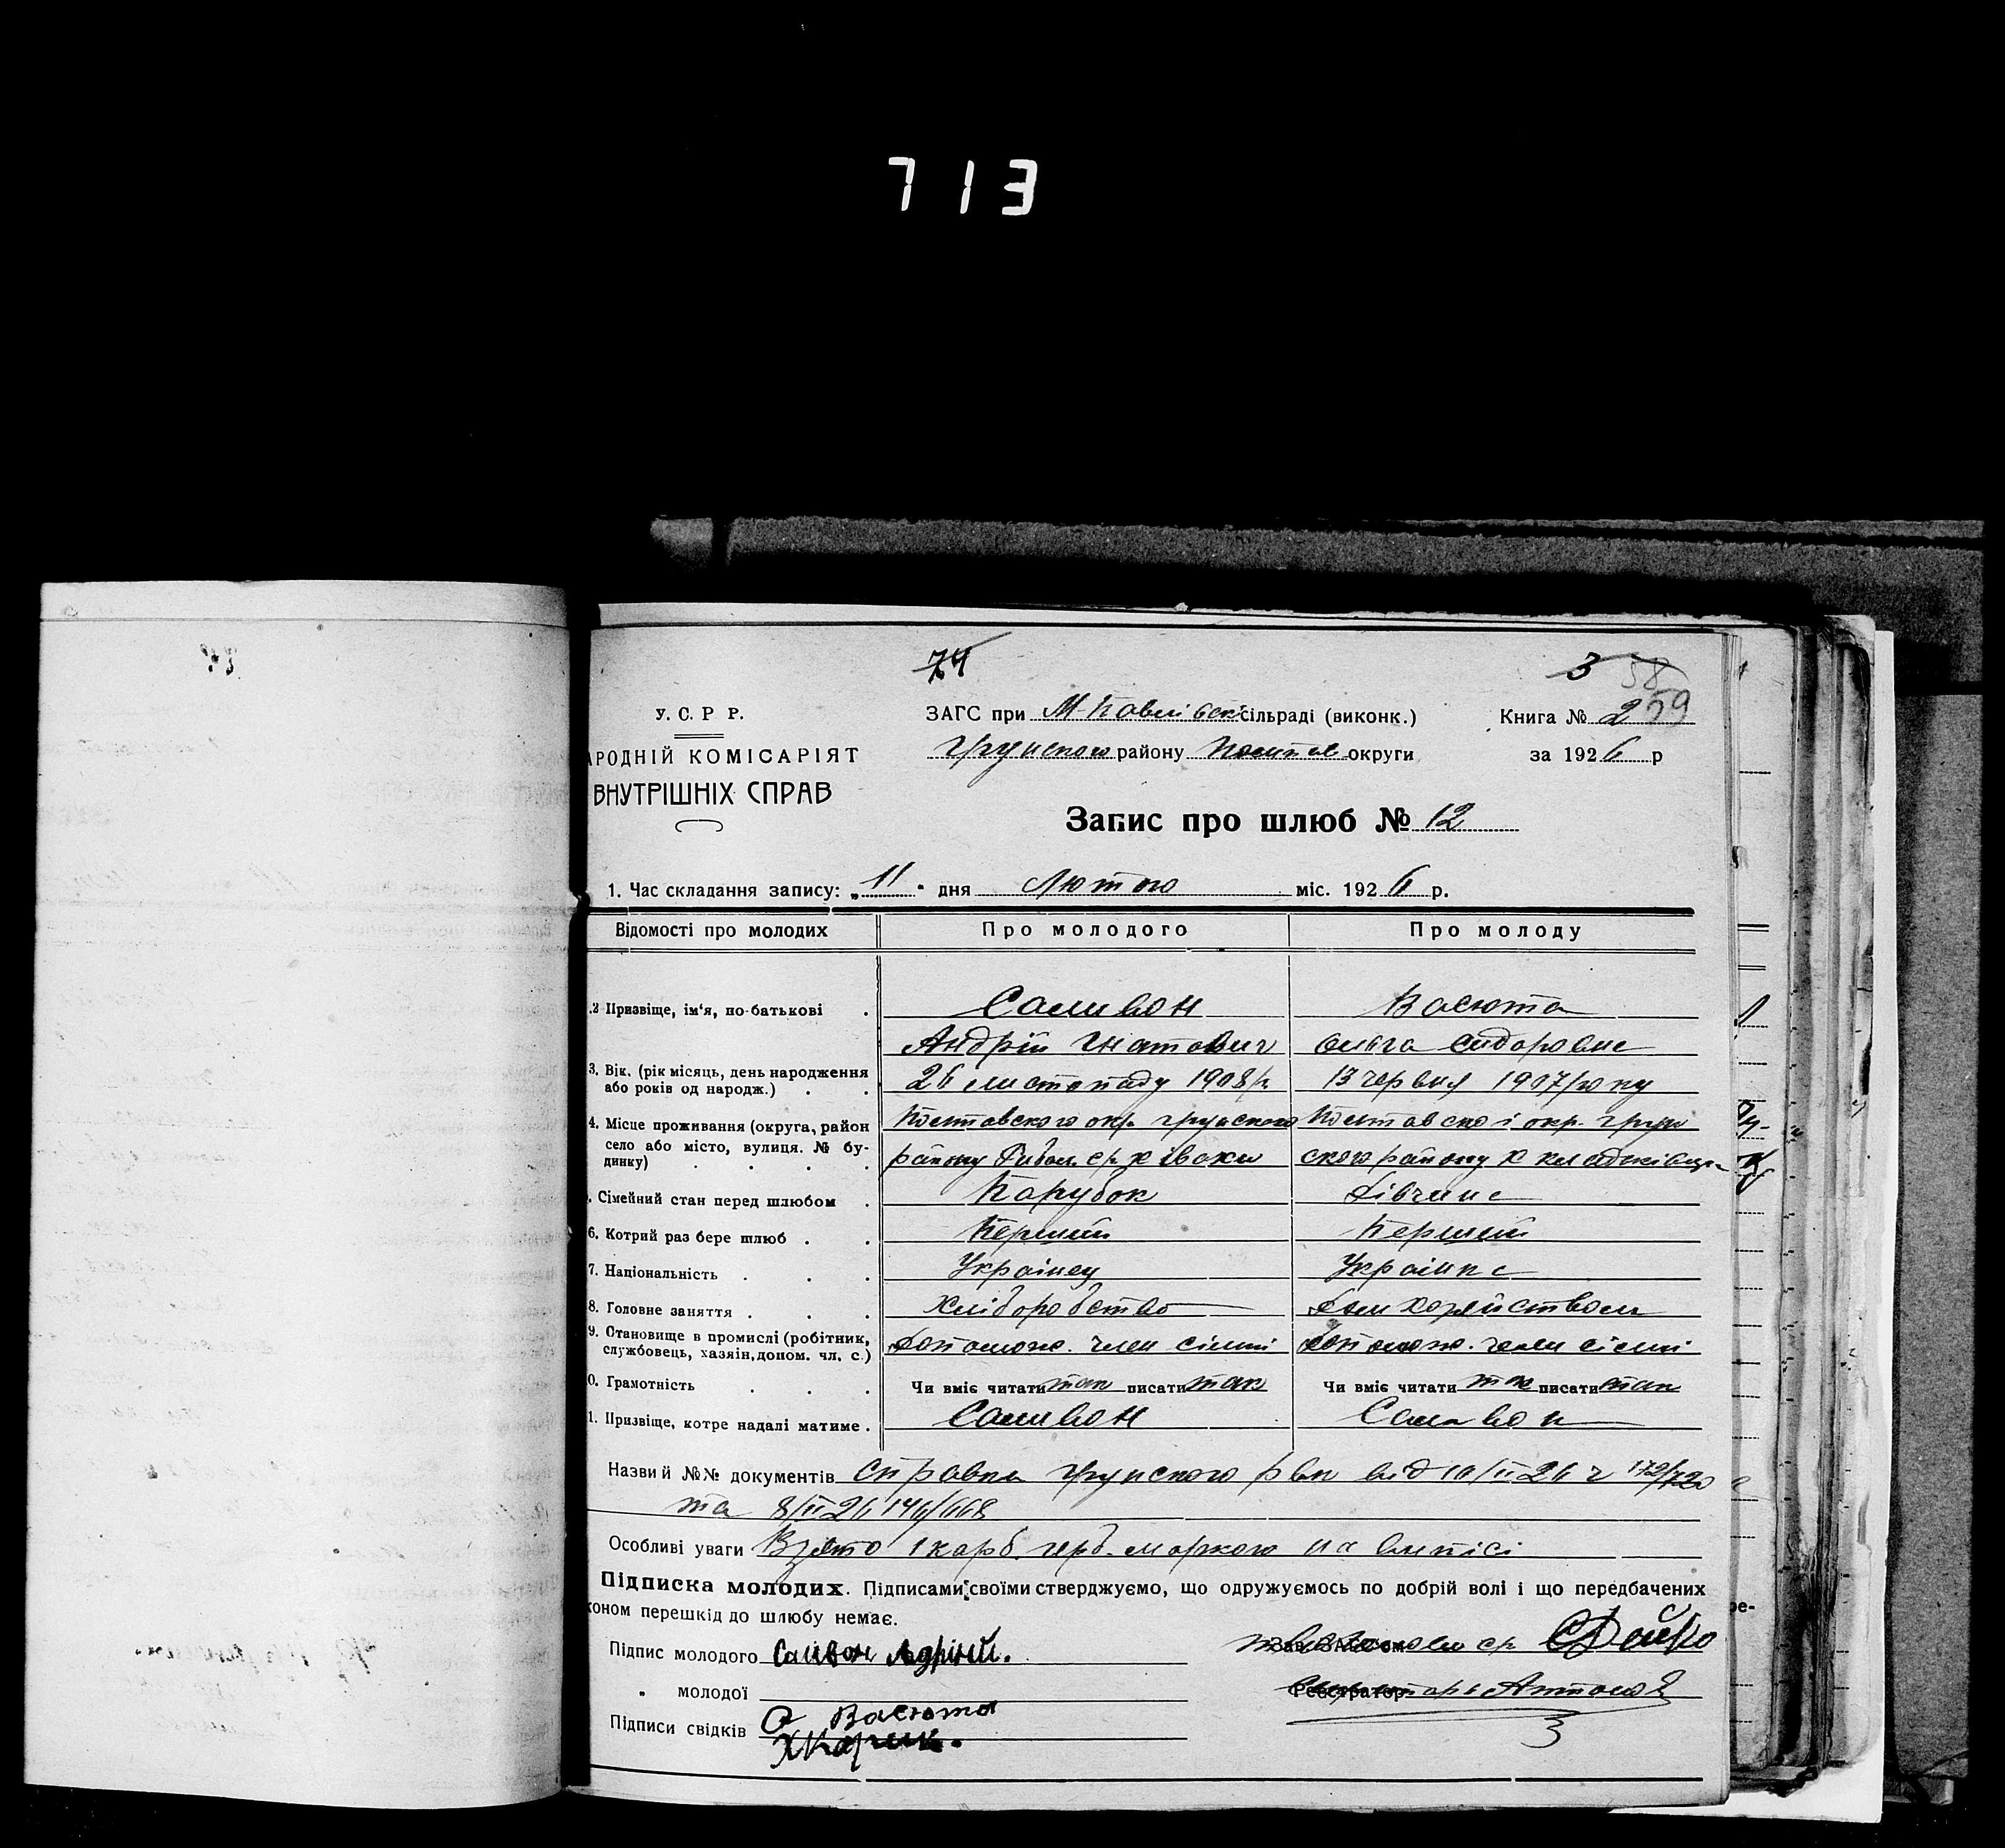 713
74
3 58
У. С. Р Р.
ЗАГС при М-Павлівськ сільраді (виконк.)
Книга № 2 59
АРОДНІЙ КОМІСАРІЯТ
Грунского району Полтав округи
за 1926 р
ВНУТРІШНІХ СПРАВ
Запис про шлюб № 12
1. Час складання запису: „11" дня Лютого міс. 1926 р.
Відомості про молодих Про молодого Про молоду
.2 Призвіще, ім'я, по-батькові . Саливон Васюта
Андрій Гнатович Ольга Сидоровна
3. Вік. (рік місяць, день народження 26 листопаду 1908 р. 13 червня 1907 року
або років од народж.) . .
4. Місце проживання (округа, район Полтавского окр. Грунского Полтавскоі окр. Грун
село або місто, вулиця. № бу- району с/р х Івахи ского району х
динку) . . . .
. Сімейний стан перед шлюбом . Парубок Дівчина
6. Котрий раз бере шлюб . . Перший Перший
7. Національність . . . Украінец Украінка
8. Головне заняття . . . Хліборобство Дом хозяйством
9. Становище в промислі (робітник, Допомож. член сімьі Допомож. член сімьі
службовець, хазяін, допом. чл. с.)
0. Грамотність . . . Чи вміє читати так писати так Чи вміє читати так писати так
1. Призвіще, котре надалі матиме . Саливон Саливон
Назви й №№ документів Справка Грунского рвк від 10/II 26 ч 172/720
та 8/II 26 146/668
Особливі уваги Взято 1 карб. герб. маркою на випісі
Підписка молодих. Підписами своїми стверджуємо, що одружуємось по добрій волі і що передбачених
коном перешкід до шлюбу немає.
Підпис молодого Саливон Адрій.
Зав. ЗАГС'ом
„ молодої
Реєстратор
Підписи свідків О Васюта